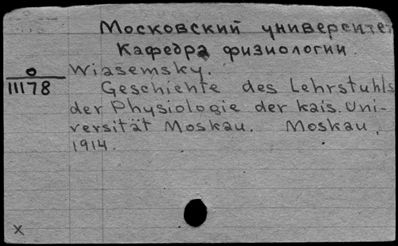 Московский университе
Кафедра физиологии.
Wiasemsky.
o
11178
Geschichte des Lehrstuhls
der Physiologie der kais. Uni-
versität Moskau. Moskau,
1914.
x